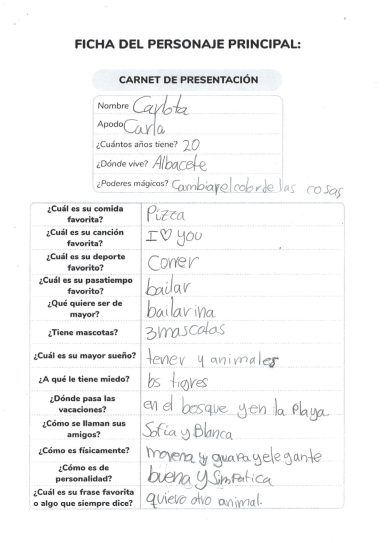 FICHA DEL PERSONAJE PRINCIPAL:
CARNET DE PRESENTACIÓN
Nombre Carlota
Apodo Carla
¿Cuántos años tiene? 20
¿Dónde vive? Albacete
¿Poderes mágicos? Cambiar el color de las cosas
¿Cuál es su comida
favorita? Pizza
¿Cuál es su canción
favorita? I ♡ you
¿Cuál es su deporte
favorito? Correr
¿Cuál es su pasatiempo
favorito? bailar
¿Qué quiere ser de
mayor? bailarina
¿Tiene mascotas? 3 mascotas
¿Cuál es su mayor sueño? tener 4 animales
¿A qué le tiene miedo? los tigres
¿Dónde pasa las
vacaciones? en el bosque y en la Playa
¿Cómo se llaman sus
amigos? Sofía y Blanca
¿Cómo es físicamente? morena y guapa y elegante
¿Cómo es de
personalidad? buena y Simpatica
¿Cuál es su frase favorita
o algo que siempre dice? quiero otro animal.